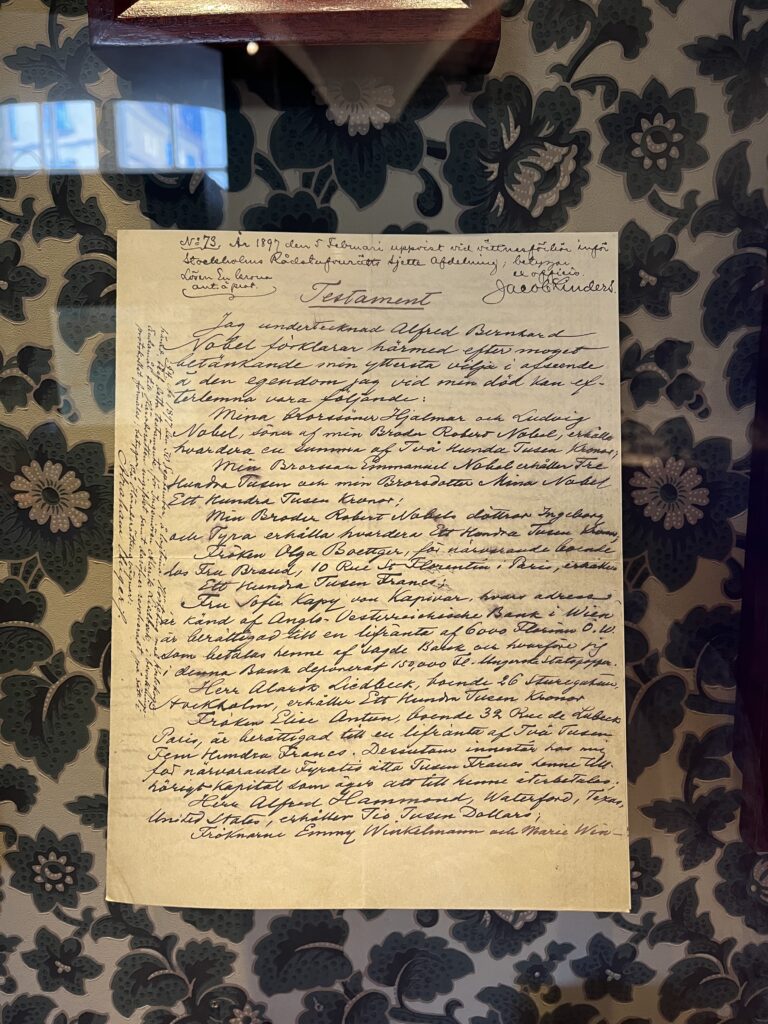 No 73. År 1897 den 5 Februari uppvist vid vittnesförhör inför
Stockholms Rådstufvurätts sjette Afdelning; betygar
Lösen En krona
ex officio.
Jacob Linders
Testament
Jag undertecknad Alfred Bernhard
Nobel förklarar härmed efter moget
betänkande min yttersta vilja i afseende
å den egendom jag vid min död kan ef-
terlemna vara följande:
Mina Brorsöner Hjalmar och Ludvig
Nobel, söner af min Broder Robert Nobel, erhålla
hvardera en summa af Två Hundra Tusen Kronor;
Min Brorson Emmanuel Nobel erhåller Tre
Hundra Tusen och min Brorsdotter Mina Nobel
Ett Hundra Tusen Kronor;
Min Broder Robert Nobels döttrar Ingeborg
och Tyra erhålla hvardera Ett Hundra Tusen Kronor;
Fröken Olga Boettger, för närvarande boende
hos Fru Brand, 10 Rue St Florentin i Paris, erhåller
Ett Hundra Tusen Francs;
Fru Sofie Kapy von Kapivar, hvars adress
är känd af Anglo-Oesterreichische Bank i Wien
är berättigad till en lifränta af 6000 Florins Ö.W.
som betalas henne af sagde Bank och hvarför jag
i denna Bank deponerat 150,000 Fl. i Ungerska Statspapper.
Herr Alarik Liedbeck, boende 26 Sturegatan,
Stockholm, erhåller Ett Hundra Tusen Kronor
Fröken Elise Antun, boende 32 Rue de Lubeck
Paris, är berättigad till en lifränta af Två Tusen
Fem Hundra Francs. Dessutom innestår hos mig
för närvarande Fyratio åtta Tusen Francs henne till-
hörigt kapital som äger att till henne återbetalas;
Herr Alfred Hammond, Waterford, Texas,
United States, erhåller Tio Tusen Dollars;
Fröknarne Emmy Winkelmann och Marie Win-